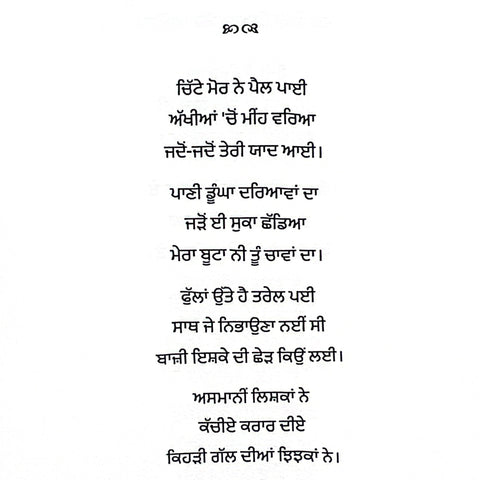 ਚਿੱਟੇ ਮੋਰ ਨੇ ਪੈਲ ਪਾਈ
ਅੱਖੀਆਂ 'ਚੋਂ ਮੀਂਹ ਵਰਿਆ
ਜਦੋਂ-ਜਦੋਂ ਤੇਰੀ ਯਾਦ ਆਈ।
ਪਾਣੀ ਡੂੰਘਾ ਦਰਿਆਵਾਂ ਦਾ
ਜੜੋਂ ਈ ਸੁਕਾ ਛੱਡਿਆ
ਮੇਰਾ ਬੂਟਾ ਨੀ ਤੂੰ ਚਾਵਾਂ ਦਾ।
ਫੁੱਲਾਂ ਉੱਤੇ ਹੈ ਤਰੇਲ ਪਈ
ਸਾਥ ਜੇ ਨਿਭਾਉਣਾ ਨਈਂ ਸੀ
ਬਾਜ਼ੀ ਇਸ਼ਕੇ ਦੀ ਛੇੜ ਕਿਉਂ ਲਈ।
ਅਸਮਾਨੀਂ ਲਿਸ਼ਕਾਂ ਨੇ
ਕੱਚੀਏ ਕਰਾਰ ਦੀਏ
ਕਿਹੜੀ ਗੱਲ ਦੀਆਂ ਝਿਝਕਾਂ ਨੇ।